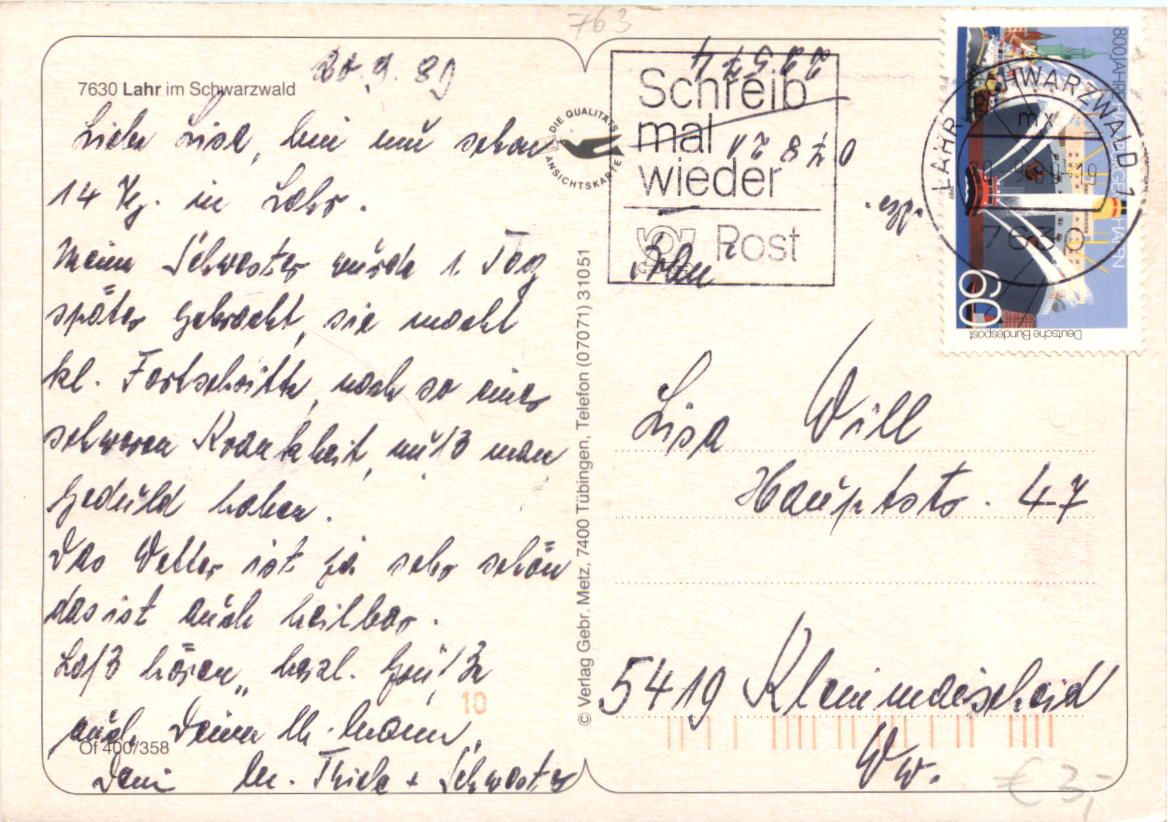 763
20.9.89
7630 Lahr im Schwarzwald
Liebe Lisa, bin nun schon
14 Tg. in Lahr.
Meine Schwester würde 1. Tag
später gebracht, sie macht
kl. Fortschritte, nach so einer
schweren Krankheit, muß man
Geduld haben.
Das Wetter ist ja sehr schön
das ist auch heilbar.
Laß hören,, herzl. Grüße
auch Deinem lb. Mann,
Deine M. Thiele + Schwester
Of 400/358
10
DIE QUALITÄTS
ANSICHTSKARTE
© Verlag Gebr. Metz, 7400 Tübingen, Telefon (07071) 31051
Schreib
mal
wieder
Post
22574
07821
LAHR, SCHWARZWALD 1
mx
7630
800 JAHRE HAFEN
60
Deutsche Bundespost
Lisa Will
Hauptstr. 47
5419 Kleinmaischeid
Ww.
€ 3,-